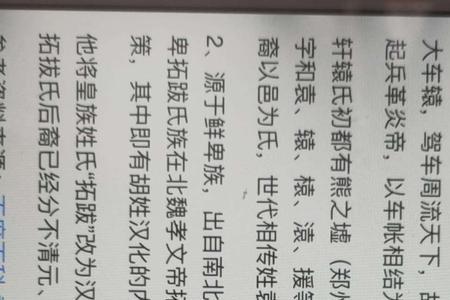 大车辕，驾车周流天下，故
起兵革炎帝，以车帐相结
轩辕氏初都有熊之墟（郑州
字和袁、辕、榬、溒、援等
裔以邑为氏，世代相传姓袁
2、源于鲜卑族，出自南北
卑拓跋氏族在北魏孝文帝拓
策，其中即有胡姓汉化的内
他将皇族姓氏“拓跋”改为汉
拓拔氏后裔已经分不清元、